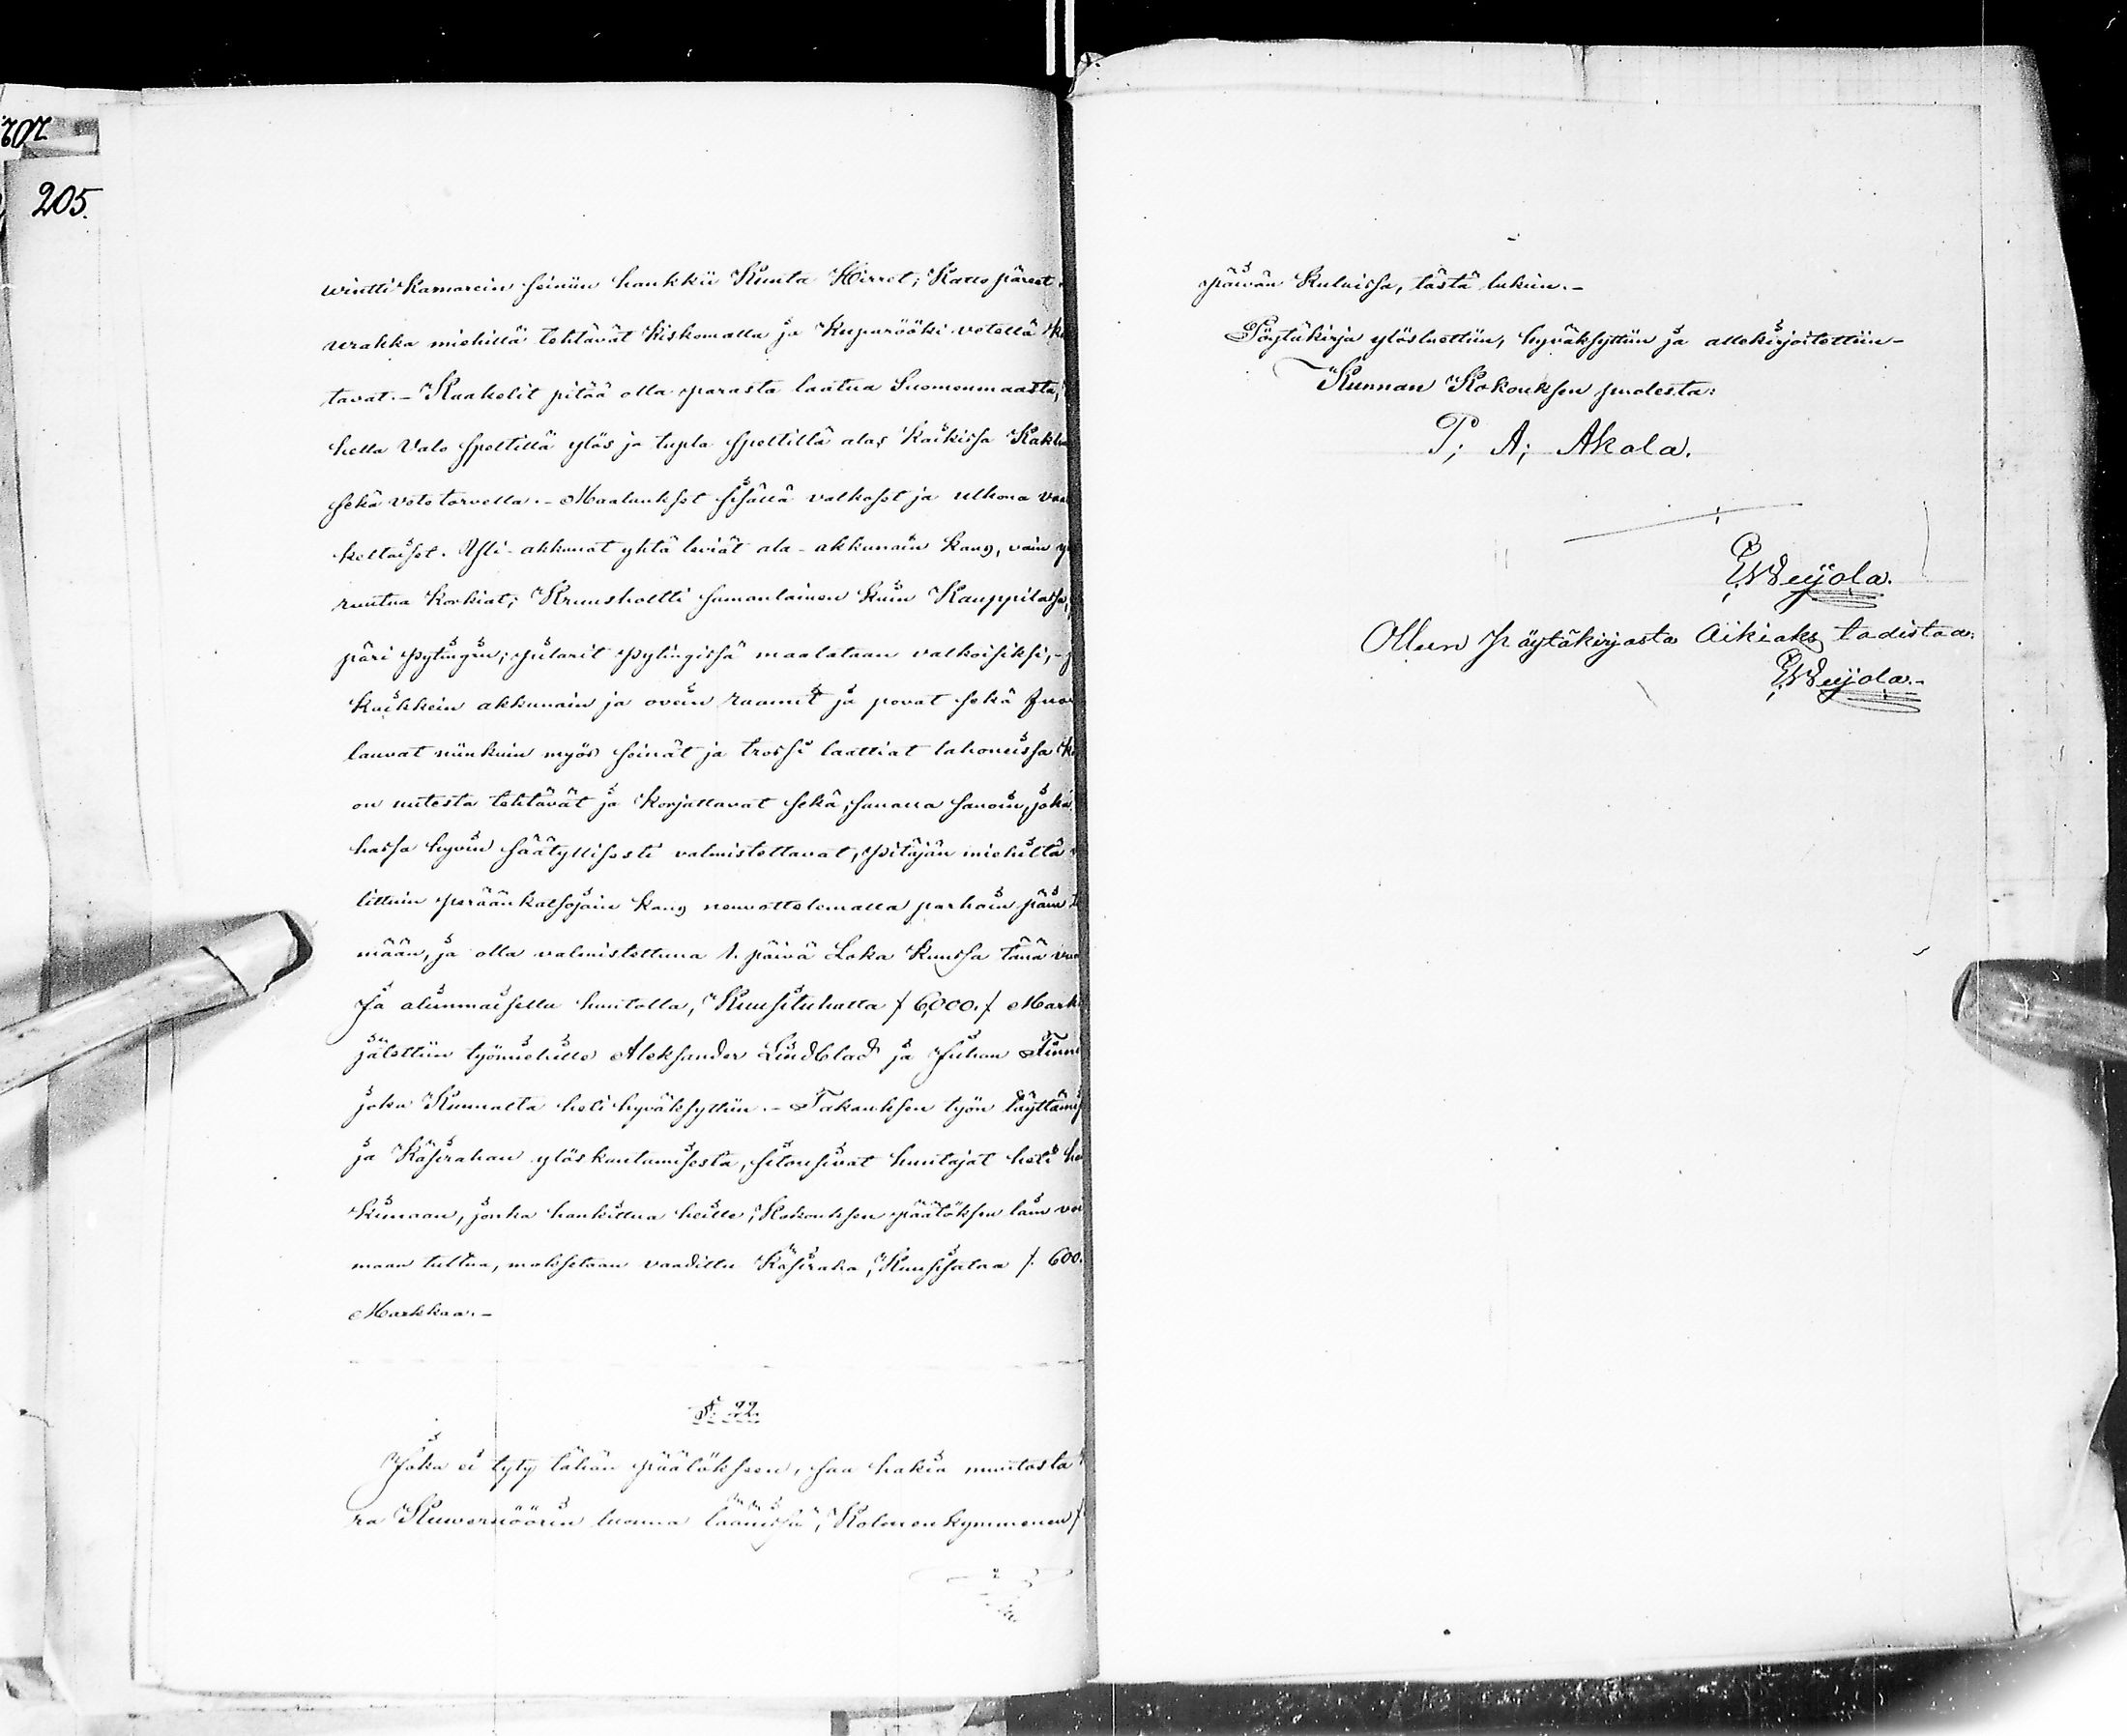 202
205.
wintti kamarein seiniin hankkii Kunta Hirret; Katto päreet
urakka miehillä tehtävät kiskomalla ja Kuparööki vetellä
tavat. - Kaakelit pitää olla parasta laatua Suomenmaasta,
hella Valo speltillä ylös ja tupla speltillä alas kaikissa
sekä veto torvella. - Maalaukset sisällä valkoset ja ulkona
keltaiset. Yli-akkunat yhtä leviät ala-akkunain kans, vain
ruutua korkiat; Kruusholtti samanlainen kuin Kauppilassa,
päri pytingin; pilarit pytingissä maalataan valkoisiksi, -
kaikkein akkunain ja ovein raamit ja povat sekä
lauvat niinkuin myös seinät ja trossi laattiat lahoneissa
on uutesta tehtävät ja korjattavat sekä, sanalla sanoin,
hassa hyvin säätyllisesti valmistettavat, pitäjän miehiltä
littuin peräänkatsojain kans neuvottelemalla parhain päin
mään, ja olla valmistettuna 1. päivä Loka kuussa tänä
Ja alimmaisella huutolla, Kuusituhatta /6,000./
jätettiin työmiehille Aleksander Lindblad ja Juhan
joka Kunnalta heti hyväksyttiin. - Takauksen työn
ja Käsirahan ylöskantamisesta, sitousivat huutajat heti
kimaan, jonka hankittua heille, Kokouksen päätöksen lain
maan tultua, maksetaan vaadittu Käsiraha, Kuusisataa /. 600.
Markkaa. -
§. 22.
Joka ei tyty tähän päätökseen, saa hakia muutosta
ra Kuwernöörin luonna läänissä, Kolmenkymmenen /
päivän kuluissa, tästä lukiin. -
Pöytäkirja ylösluettiin, hyväksyttiin ja allekirjoitettiin -
Kunnan Kokouksen puolesta:
P; A; Akola.
Ollen pöytäkirjasta Oikiaks todistaa: